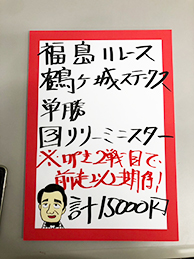 福島11レース
鶴ヶ城ステークス
単勝
国リリーミニスター
※叩き2戦目で、
前走以上期待!
計15000円